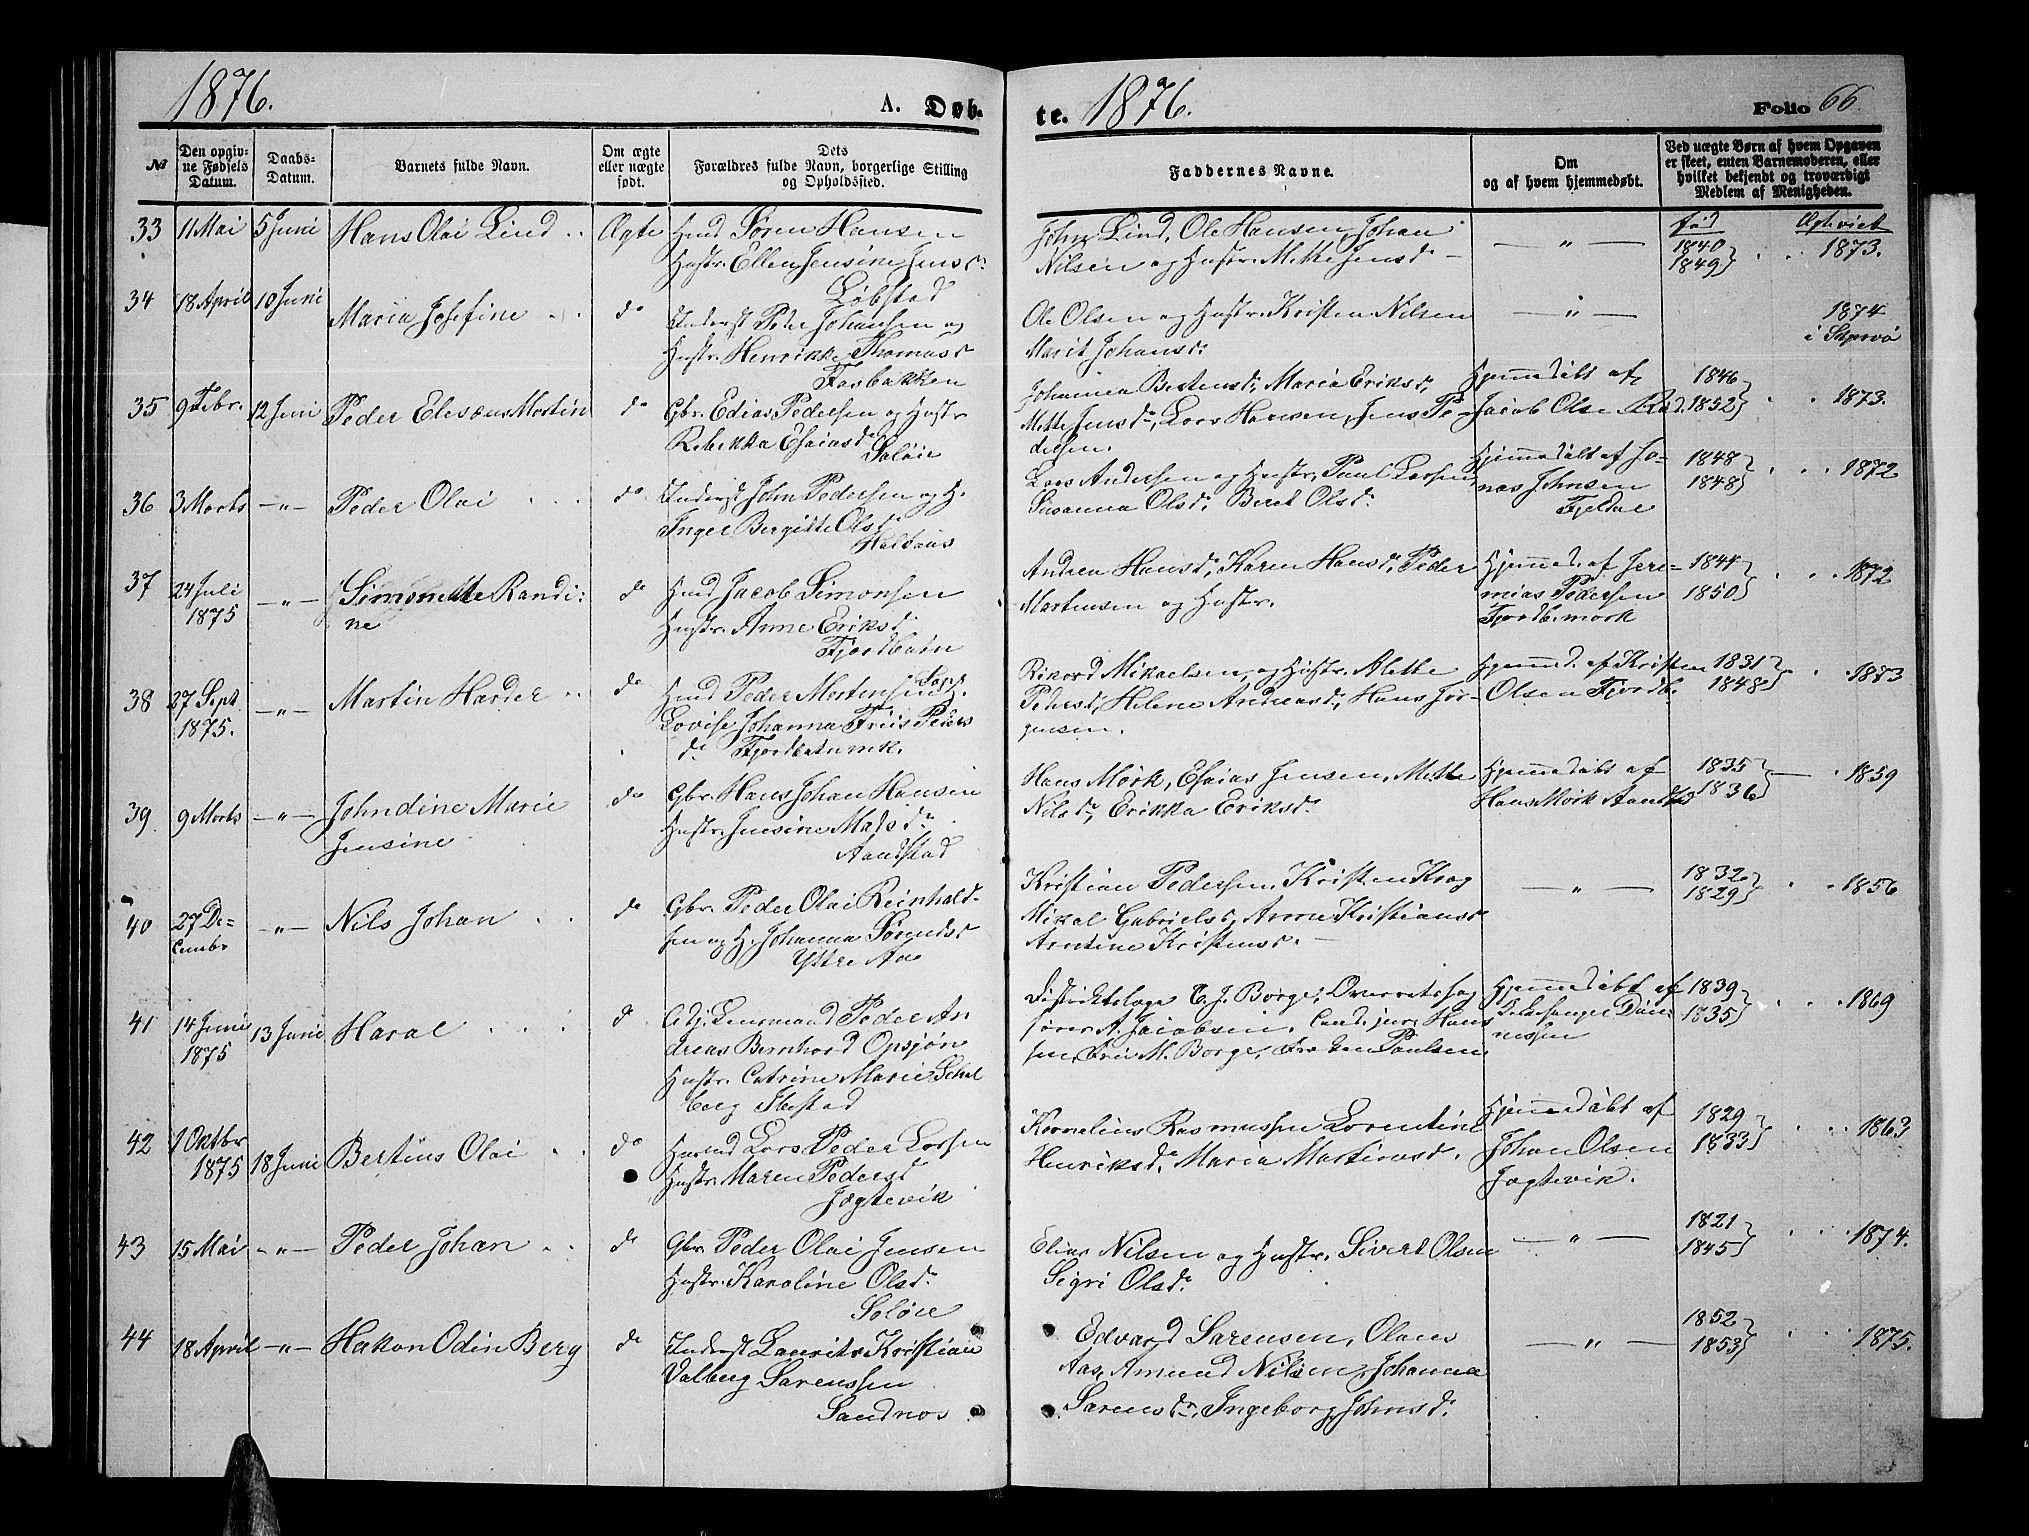 1876.
A. Døb-
te. 1876.
Folio 66.
№
Den opgiv-
ne Fødsels
Datum.
Daabs-
Datum.
Barnets fulde Navn.
Om ægte
eller uægte
født.
Dets
Forældres fulde Navn, borgerlige Stilling
og Opholdssted.
Faddernes Navne.
Om
og af hvem hjemmedøbt.
Ved uægte Børn af hvem Opgaven
er skeet, enten Barnemoderen, eller
hvilket bekjendt og troværdigt
Medlem af Menigheden.
33 11 Mai 5 Juni Hans Olai Lind Ægte Husm Søren Hansen
Hustr. Ellen Jensine Jensd.
Løbstad
John Lind, Ole Hansen, Johan
Nilsen og Hustr. Mette Jensd.
— " —
fød
1840
1849
1873.
34 18 April 10 Juni Maria Josefine do
Inderst Peder Johansen og
Hustr. Henrikke Thomasd
Fossbakken
Ole Olsen og Hustr. Kristen Nilsen
Marit Johansd.
— " —
1874
i Skjervø
35 9 Febr. 12 Juni Peder Eliseus Mortin do
Gbr. Edias Pedersen og Hustr
Rebekka Esaiasd
Soløie
Johanna Bertensd, Maria Eriksd,
Mette Jensd, Lars Hansen, Jens Pe-
dersen.
Hjemmedøbt af
Jacob Olsen Rød.
1846
1852
1873.
36 3 Marts —"— Peder Olai do
Inderst John Pedersen og H.
Inger Bergitte Olsd
Lars Andersen og Hustr, Paul Larsen,
Susanna Olsd, Beret Olsd.
Hjemmedøbt af Jo-
nas Johnsen
Fjeldal
1848
1848
1872
37 24 Juli
1875
—"— Simonette Randi-
ne
do
Husm Jacob Simonsen
Hustr. Anne Eriksd
Fjordbotn
Andrea Hansd, Karen Hansd, Peder
Martensen og Hustr.
Hjemmed. af Jere-
mias Pedersen
Fjordb.mark
1844
1850
1872
38 27 Sept
1875.
—"— Martin Harder do
Husm Peder Mortensen
Lovise Johanna Friis Peders
d.
Rikard Mikaelsen og Hustr. Mette
Pedersd, Helene Andreasd, Hans Jør-
gensen.
Hjemmed. af Kristen
Olsen Fjordb.
1831
1848
1873
39 9 Marts —"— Johndine Marie
Jensine
do
Gbr. Hans Johan Hansen
Hustr. Jensine Matsd
Aandstad
Hans Mørk, Esaias Jensen, Mette
Nilsd, Erikka Eriksd.
Hjemmedøbt af
Hans Mørk Aandstad
1835
1836
1859
40 27 De-
cembr
—"— Nils Johan do
Gbr. Peder Olai Reinhold-
sen og H. Johanna Sørensd
Yttre Aa
Kristian Pedersen, Kristen Krog
Mikal Gabrielsd, Anne Kristiansd
Arntine Kristensd.
— " —
1832
1829
1856
41 14 Juni
1875
13 Juni Haral d
Adj. Lensmand Peder An
dreas Bernhard Opsjøn
Hustr. Catrine Marie Schel
berg Ibestad
Distriktslæge C. J. Borge, Overretssag
fører A. Jacobsen, Cand. jur. Hans
sen, Fru M. Borge, Frøken Paulsen.
Hjemmedøbt af
1839
1835
1869
42 1 Oktbr
1875
18 Juni Bertius Olai do
Husmd Lars Peder Larsen
Hustr. Maren Pedersd
Jægtevik
Kornelius Rasmussen Lorentine
Henriksd. Maria Martinusd.
Hjemmedøbt af
Johan Olsen
Jægtevik.
1829
1833
1863
43 15 Mai —"— Peder Johan do
Gbr Peder Olai Jensen
Hustr. Karoline Olsd.
Soløie
Elias Nilsen og Hustr. Sivert Olsen
Sigri Olsd.
— " —
1821
1845
1874.
44 18 April —"— Hakon Odin Berg do
Inderst Laurits Kristian
Valberg Sørenssen
Sandnos
Edvard Sørensen, Olaus
Aas, Amund Nilsen, Johanna
Sørensd, Ingeborg Johnsd.
— " —
1852
1853
1875.